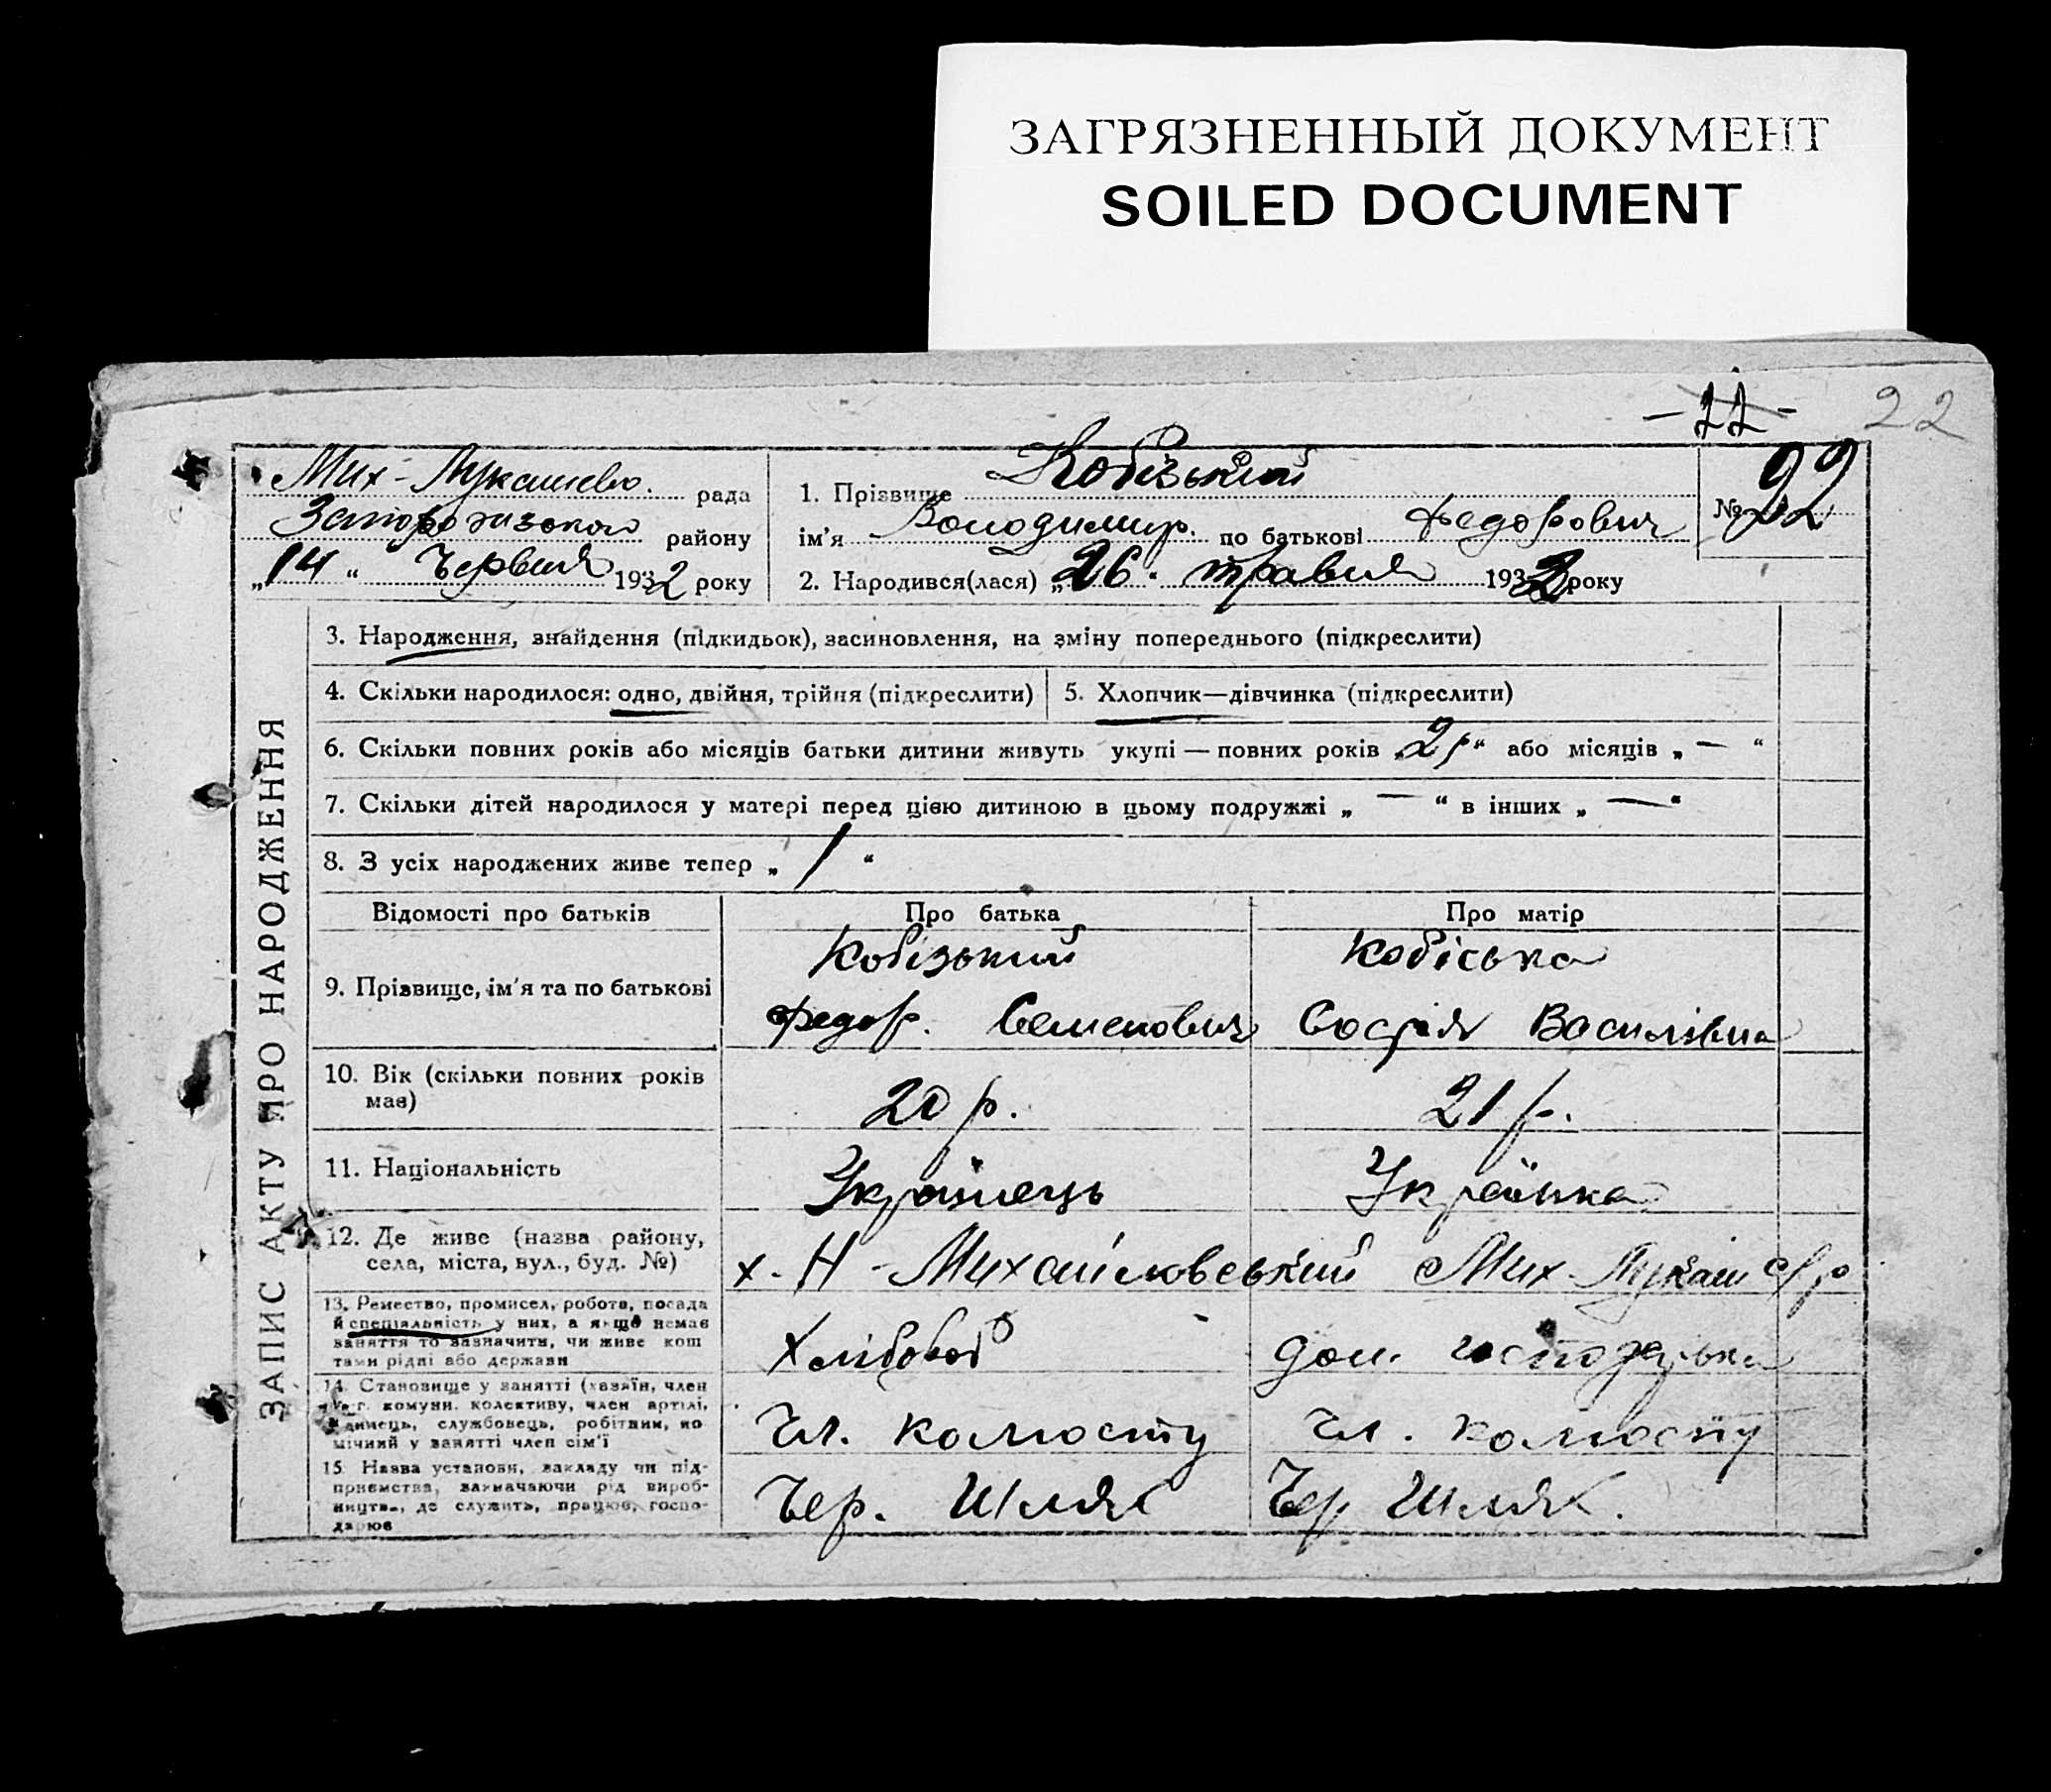 ЗАГРЯЗНЕННЫЙ ДОКУМЕНТ
SOILED DOCUMENT
- 22 -
22
Мих-Лукашево. рада
Запорожзької району
„14“ Червня 1932 року
1. Прізвище Кобізький
ім’я Володимир. по батькові Федорович
2. Народився(лася) „26. травня 1932 року
№ 22
22
ЗАПИС АКТУ ПРО НАРОДЖЕННЯ
3. Народження, знайдення (підкидьок), засиновлення, на зміну попереднього (підкреслити)
4. Скільки народилося: одно, двійня, трійня (підкреслити)
5. Хлопчик—дівчинка (підкреслити)
6. Скільки повних років або місяців батьки дитини живуть укупі — повних років „2 р“ або місяців „ — “
7. Скільки дітей народилося у матері перед цією дитиною в цьому подружжі „ — “ в інших „ — “
8. З усіх народжених живе тепер „ 1 “
Відомості про батьків
Про батька
Про матір
9. Прізвище, ім’я та по батькові
Кобізький
Федор. Семенович
Кобіська
Софія Василівна
10. Вік (скільки повних років
має)
20 р.
21 р.
11. Національність
Українець
Українка
12. Де живе (назва району,
села, міста, вул., буд. №)
х. Н-Михайловський Мих-Лукаш с/р
13. Ремество, промисел, робота, посада
й спеціяльність у них, а якщо немає
заняття то зазначити, чи живе кош
тами рідні або держави
Хлібороб
дом. господарька
14. Становище у занятті (хазяїн, член
с.-г. комуни, колективу, член артілі,
одинець, службовець, робітник, по
мічний у занятті член сім’ї
Чл. колгоспу
Чл. колгоспу
15. Назва установи, закладу чи під-
приємства, зазначаючи рід вироб-
ництва, де служить, працює, госпо-
дарює
Чер. Шлях
Чер. Шлях.